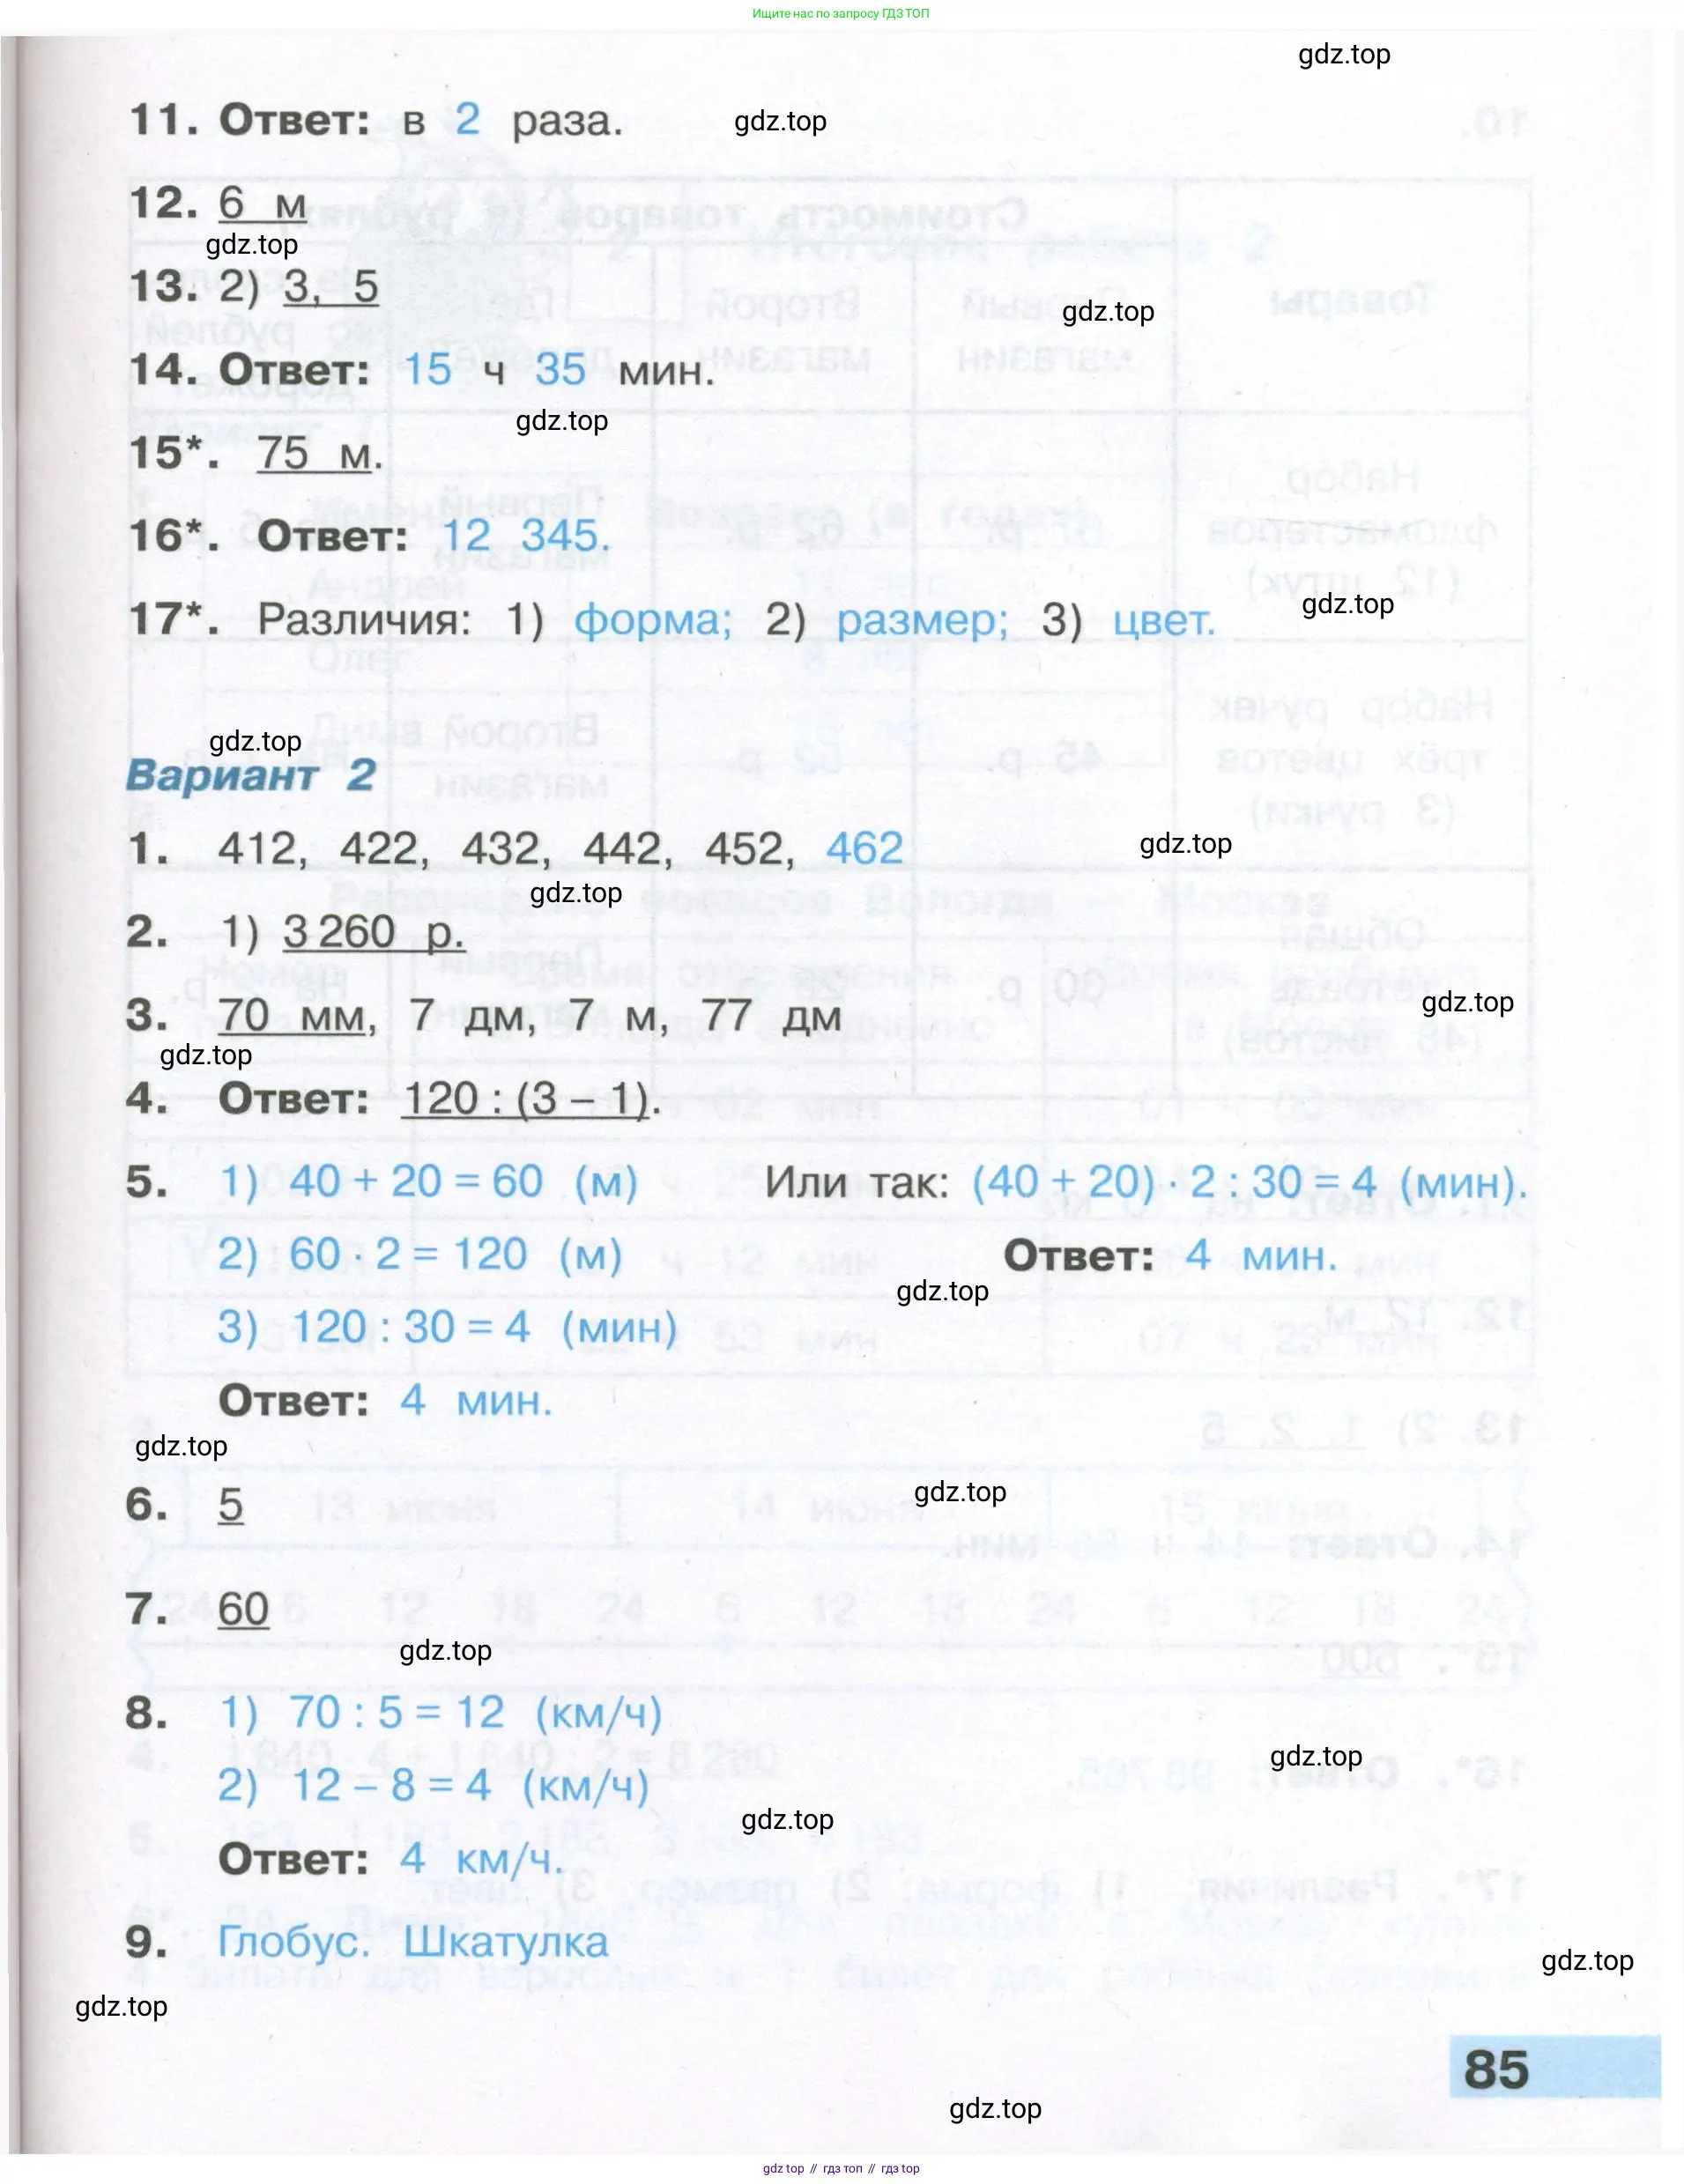 Ищите нас по запросу ГДЗ ТОП
gdz.top
11. Ответ: в 2 раза.
gdz.top
12. 6 м
gdz.top
13. 2) 3, 5
gdz.top
14. Ответ: 15 ч 35 мин.
gdz.top
15*. 75 м.
16*. Ответ: 12 345.
gdz.top
17*. Различия: 1) форма; 2) размер; 3) цвет.
gdz.top
Вариант 2
1. 412, 422, 432, 442, 452, 462
gdz.top
gdz.top
2. 1) 3 260 р.
gdz.top
3. 70 мм, 7 дм, 7 м, 77 дм
gdz.top
4. Ответ: 120 : (3 – 1).
5. 1) 40 + 20 = 60 (м) Или так: (40 + 20) · 2 : 30 = 4 (мин).
2) 60 · 2 = 120 (м) Ответ: 4 мин.
gdz.top
3) 120 : 30 = 4 (мин)
Ответ: 4 мин.
gdz.top
gdz.top
6. 5
7. 60
gdz.top
8. 1) 70 : 5 = 12 (км/ч)
gdz.top
2) 12 – 8 = 4 (км/ч)
gdz.top
Ответ: 4 км/ч.
9. Глобус. Шкатулка
gdz.top
gdz.top
85
gdz.top
gdz top // гдз топ // гдз top